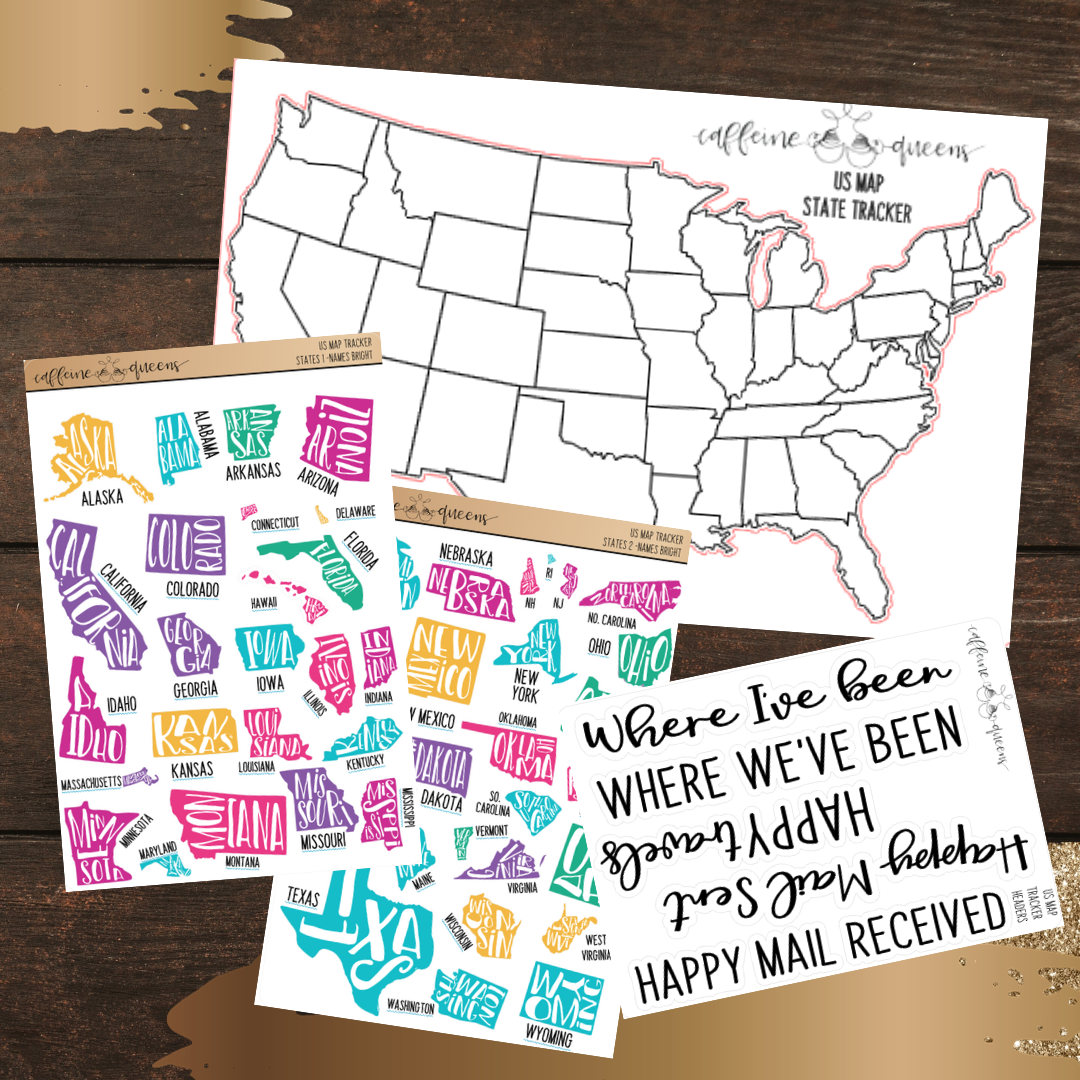 caffeine queens
US MAP
STATE TRACKER
caffeine queens
US MAP TRACKER
STATES 1 -NAMES BRIGHT
ALASKA
ALASKA
ALABAMA
ALABAMA
ARKANSAS
ARKANSAS
ARIZONA
ARIZONA
CALIFORNIA
CALIFORNIA
COLORADO
COLORADO
CONNECTICUT
DELAWARE
FLORIDA
FLORIDA
HAWAII
GEORGIA
GEORGIA
IOWA
IOWA
ILLINOIS
ILLINOIS
INDIANA
INDIANA
IDAHO
IDAHO
KANSAS
KANSAS
LOUISIANA
LOUISIANA
KENTUCKY
KENTUCKY
MASSACHUSETTS
MINNESOTA
MINNESOTA
MARYLAND
MONTANA
MONTANA
MISSOURI
MISSOURI
MISSISSIPPI
MISSISSIPPI
queens
US MAP TRACKER
STATES 2 -NAMES BRIGHT
NEBRASKA
NEBRASKA
NH
RI
NJ
NORTH CAROLINA
NO. CAROLINA
NEW MEXICO
MEXICO
NEW YORK
NEW
YORK
OHIO
OHIO
OKLAHOMA
OKLAHOMA
DAKOTA
DAKOTA
SO.
CAROLINA
SOUTH CAROLINA
VERMONT
VIRGINIA
MAINE
TEXAS
TEXAS
WISCONSIN
WISCONSIN
WEST
VIRGINIA
WASHINGTON
WASHINGTON
WYOMING
WYOMING
caffeine queens
Where I've been
WHERE WE'VE BEEN
HAPPY travels
Happy Mail Sent
HAPPY MAIL RECEIVED
US MAP
TRACKER
HEADERS